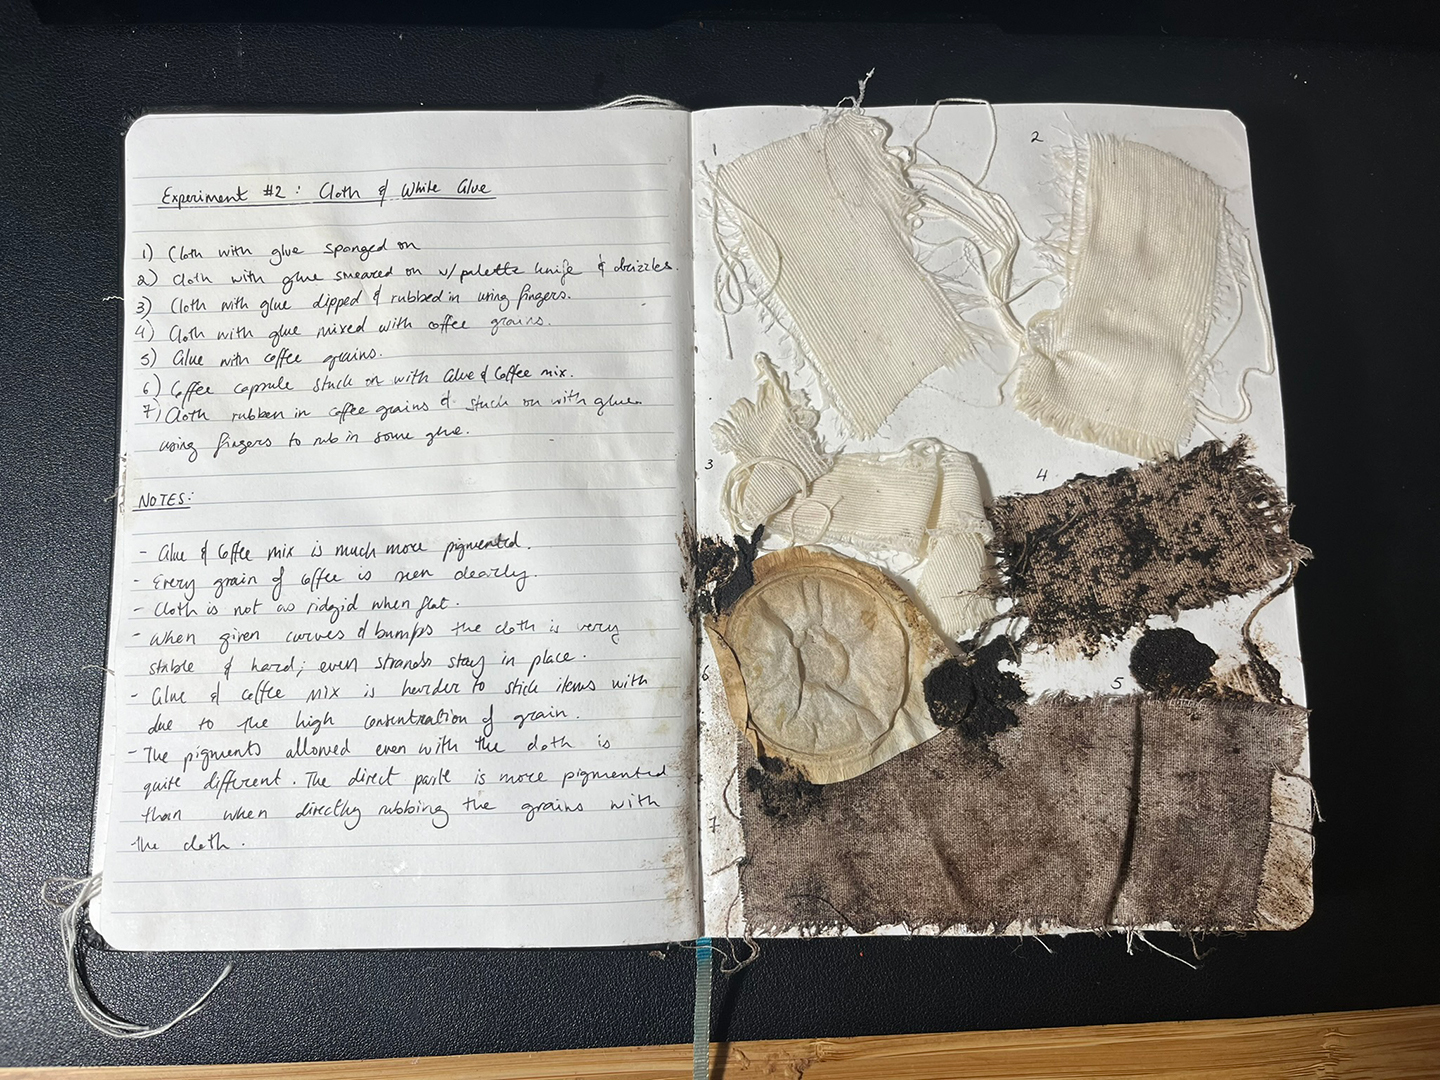 Experiment #2 : Cloth & White Glue
1) Cloth with glue sponged on
2) Cloth with glue smeared on w/ palette knife & drizzles.
3) Cloth with glue dipped & rubbed in using fingers.
4) Cloth with glue mixed with coffee grains.
5) Glue with coffee grains.
6) Coffee capsule stuck on with Glue & Coffee mix.
7) Cloth rubben in coffee grains & stuck on with glue
using fingers to rub in some glue.
NOTES:
- Glue & Coffee mix is much more pigmented.
- Every grain of coffee is seen clearly.
- Cloth is not as ridgid when flat.
- When given curves & bumps the cloth is very
stable & hard; even strands stay in place.
- Glue & coffee mix is harder to stick items with
due to the high concentration of grain.
- The pigments allowed even with the cloth is
quite different. The direct paste is more pigmented
than when directly rubbing the grains with
the cloth.
1
2
3
4
5
6
7